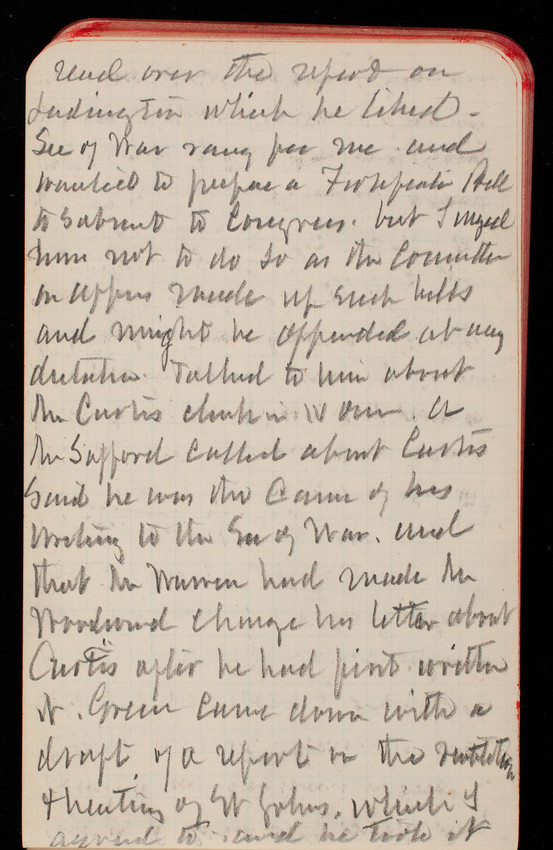 read over the report on
Ludington which he liked -
Sec of War rang for me and
wanted to prepare a Fortification Bill
to submit to Congress. but I urged
him not to do so as the Committee
on Appns made up such bills
and might be offended at any
dictation. Talked to him about
the Curtis clerk in
Mr Safford called about Curtis
Said he was the Cause of his
writing to the Sec of War. and
that Mr Warren had made Mr
Woodward change his letter about
Curtis after he had first written
it. Green came down with a
draft of a report on the ventilation
& heating of St Johns. which I
agreed to and he took it